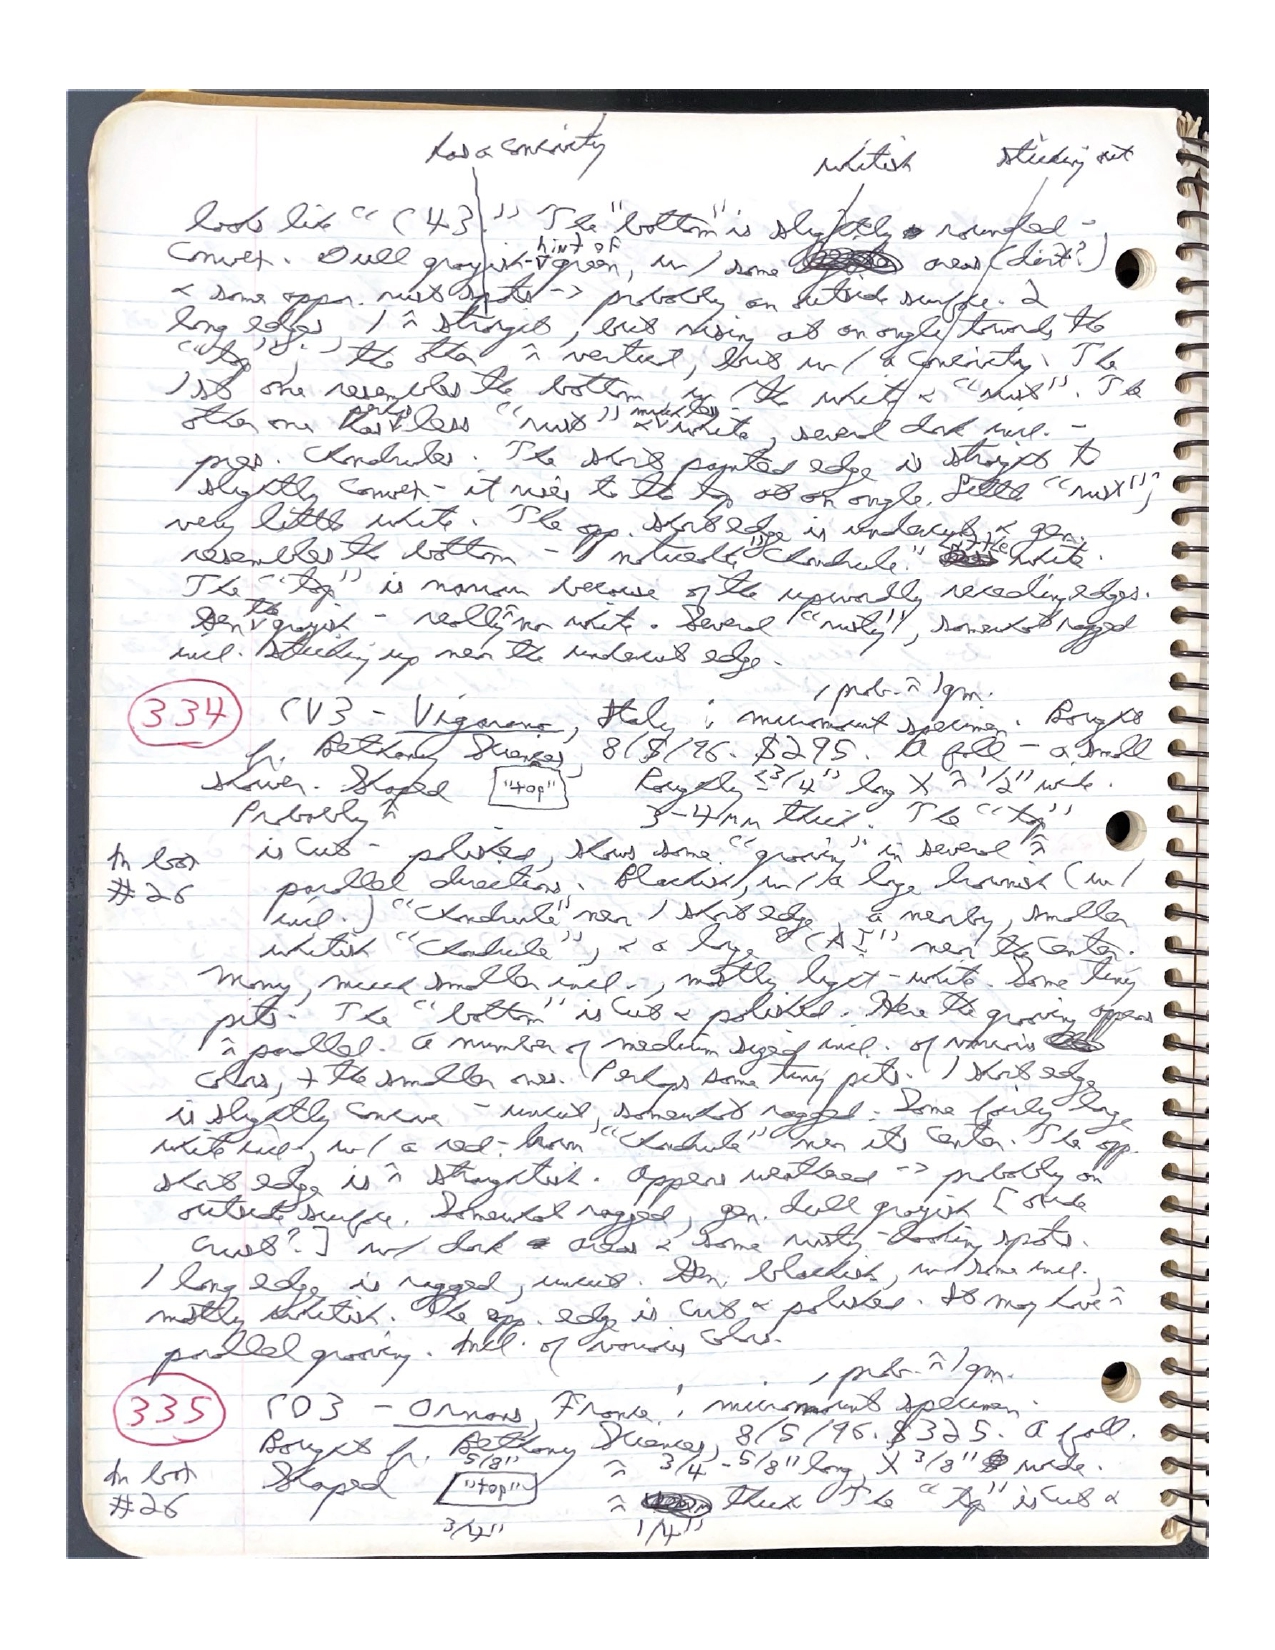 has a concavity
whitish
sticking out
looks like "C43." The "bottom" is slightly rounded -
convex. Dull grayish-hint of green, w/ some areas (dirt?)
& some appar. rust spots -> probably an outside surface. 2
long edges, 1 ≈ straight, but rising at an angle towards the
"top", the other ≈ vertical, but w/ a concavity. The
1st one resembles the bottom w/ the white & "rust". The
other one has perhaps less "rust" & much less white, several dark incl. -
pres. chondrules. The short pointed edge is straight to
slightly convex - it rises to the top at an angle. Little "rust";
very little white. The opp. short edge is undercut & gen.
resembles the bottom - 1 noticeable "chondrule." Little white.
The "top" is narrow because of the upwardly receding edges.
Gen. grayish - really no white. Several "rusty", somewhat ragged
incl. sticking up near the undercut edge.
, prob. ≈ 1 gm.
334 CV3 - Vigarano, Italy; micromount specimen. Bought
fr. Bethany Sciences, 8/5/96. $295. A fall - a small
shower. Shaped "top" Roughly ≤3/4" long X ≈ 1/2" wide.
Probably ≈ 3-4mm thick. The "top"
In box is cut - polished, shows some "grooving" in several ≈
#26 parallel directions. Blackish, w/ a large brownish (w/
incl.) "chondrule" near 1 short edge, a nearby, smaller
whitish "chondrule", & a large "CAI" near the center.
Many, much smaller incl., mostly light-white. Some tiny
pits. The "bottom" is cut & polished. Here the grooving appears
≈ parallel. A number of medium sized incl. of various
colors, + the smaller ones. Perhaps some tiny pits. 1 short edge
is slightly concave - uncut, somewhat ragged. Some fairly large
white incl., w/ a red-brown "chondrule" near its center. The opp.
short edge is ≈ straightish. Appears weathered -> probably an
outside surface. Somewhat ragged, gen. dull grayish [oxide
crust?] w/ dark areas & some rusty-looking spots.
1 long edge is ragged, uncut. Gen. blackish, w/ some incl.,
mostly whitish. The opp. edge is cut & polished. It may have ≈
parallel grooving. Incl. of various colors.
, prob. ≈ 1 gm.
335 CO3 - Ornans, France; micromount specimen.
Bought fr. Bethany Sciences, 8/5/96. $325. A fall.
5/8"
In box Shaped "top" ≈ 3/4 - 5/8" long, X 3/8" wide.
#26 ≈ thick The "top" is cut &
3/4" 1/4"